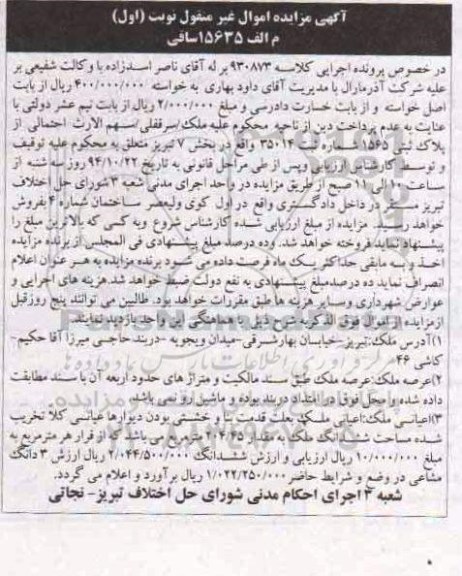 آگهی مزایده اموال غیر منقول نوبت (اول)
م الف ۱۵۶۳۵ساقی
در خصوص پرونده اجرایی کلاسه ۹۳۰۸۷۳ بر له آقای ناصر اسدزاده با وکالت شفیعی بر
علیه شرکت آذرمارال با مدیریت آقای داود بهاری به خواسته ۴۰۰/۰۰۰/۰۰۰ ریال از بابت
اصل خواسته و از بابت خسارت دادرسی و مبلغ ۲/۰۰۰/۰۰۰ ریال از بابت نیم عشر دولتی با
عنایت به عدم پرداخت دین از ناحیه محکوم علیه ملک/سرقفلی/سهم الارث احتمالی از
پلاک ثبتی ۱۵۶۵ شماره ثبت ۳۵۰۱۴ واقع در بخش ۷ تبریز متعلق به محکوم علیه توقیف
و توسط کارشناس ارزیابی وپس از طی مراحل قانونی به تاریخ ۹۴/۱۰/۲۲ روز سه شنبه از
ساعت ۱۰ الی ۱۱ صبح از طریق مزایده در واحد اجرای مدنی شعبه ۳ شورای حل اختلاف
تبریز مستقر در داخل دادگستری واقع در اول کوی ولیعصر ساختمان شماره ۴ بفروش
خواهد رسید. مزایده از مبلغ ارزیابی شده کارشناس شروع وبه کسی که بالاترین مبلغ را
پیشنهاد نماید فروخته خواهد شد. وده درصد مبلغ پیشنهادی فی المجلس از برنده مزایده
اخذ و به مابقی حداکثر یک ماه فرصت داده می شود برنده مزایده به هر عنوان اعلام
انصراف نماید ده درصدمبلغ پیشنهادی به نفع دولت ضبط خواهد شد.هزینه های اجرایی و
عوارض شهرداری وسایر هزینه ها طبق مقررات خواهد بود. طالبین می توانند پنج روزقبل
ازمزایده از اموال فوق الذکربه شرح ذیل با هماهنگی این واحد بازدید نمایند.
۱)آدرس ملک:تبریز-خیابان بهارشرقی-میدان ویجویه -دربند حاجی میرزا آقا حکیم-
کاشی ۴۶
۲)عرصه ملک:عرصه ملک طبق سند مالکیت و متراژ های حدود اربعه آن با سند مطابقت
داده شده و محل فوق در امتداد دربند بوده و ماشین رو نمی باشد.
۳)اعیانی ملک:اعیانی ملک بعلت قدمت بنا و خشتی بودن دیوارها عیانی کلا تخریب
شده مساحت ششدانگ ملک به مقدار ۲۰۴/۴۵ مترمربع می باشد که از قرار هر مترمربع به
مبلغ ۱۰/۰۰۰/۰۰۰ ریال ارزیابی و ارزش ششدانگ ۲/۰۴۴/۵۰۰/۰۰۰ ریال ارزش ۳ دانگ
مشاعی در وضع و شرایط حاضر ۱/۰۲۲/۲۵۰/۰۰۰ ریال برآورد و اعلام می گردد.
شعبه ۳ اجرای احکام مدنی شورای حل اختلاف تبریز- نجاتی